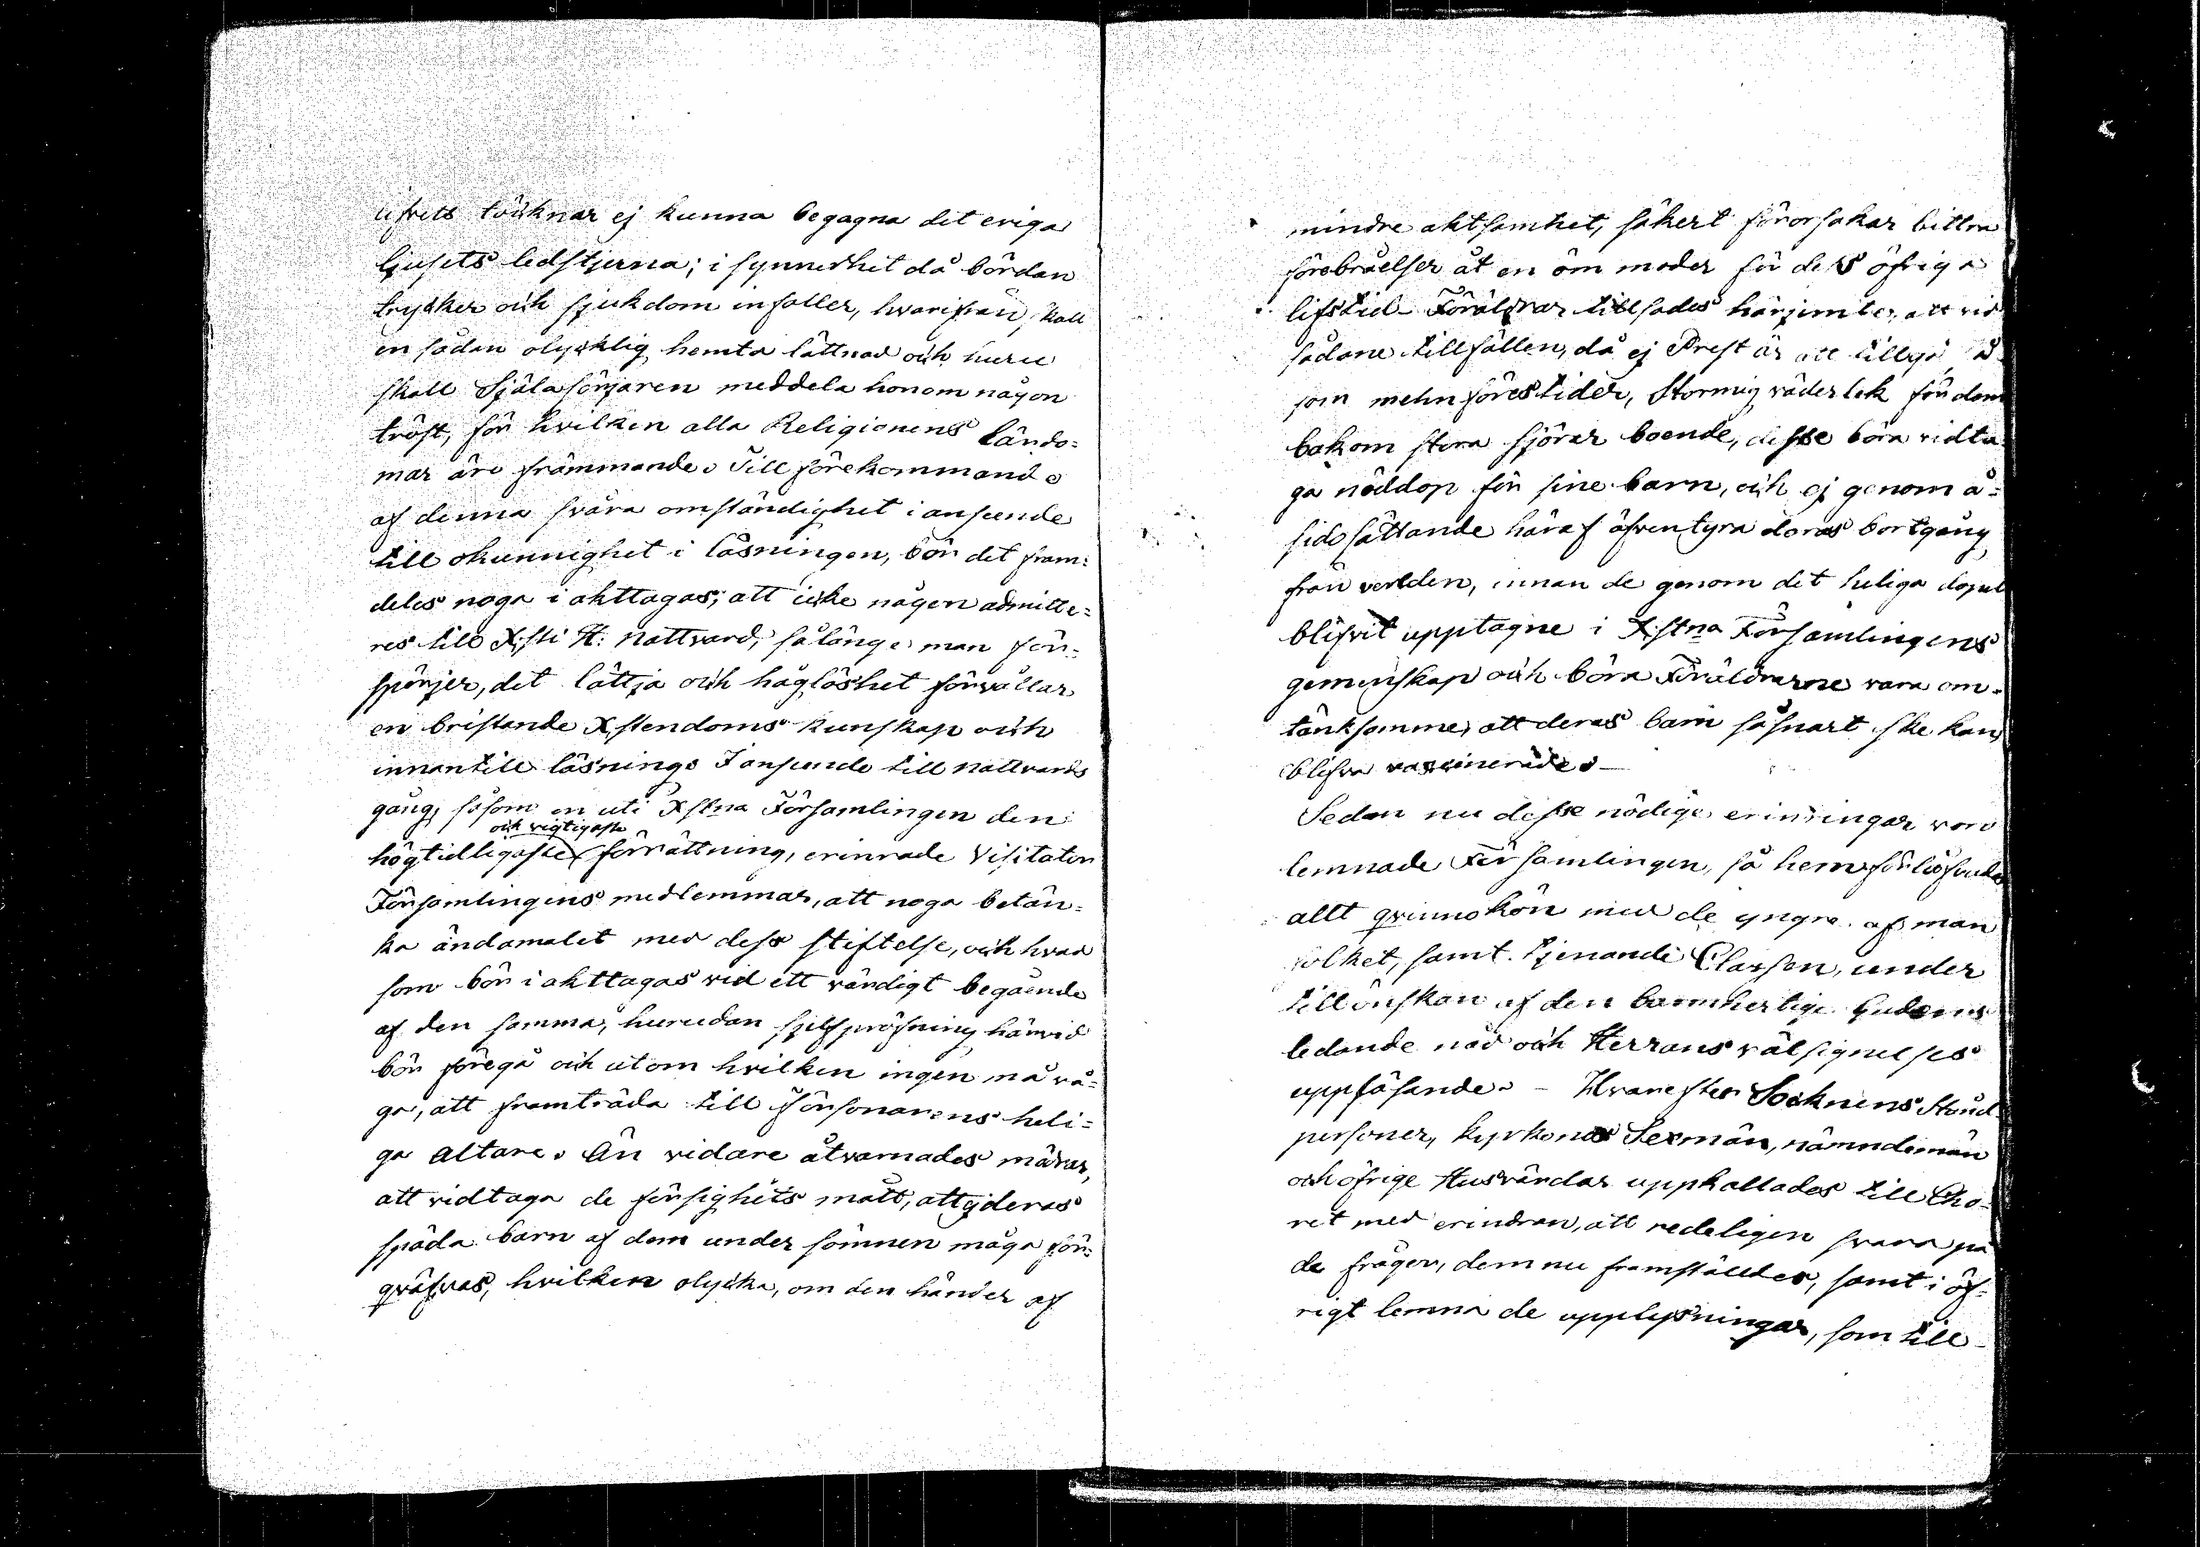 lifvets töcknar ej kunna begagna det eviga
ljusets ledstjerna; i synnerhet då bördan
trycker och sjukdom infaller, hvarifrån, skall
en sådan olycklig hemta lättnad och huru
skall Själasörjaren meddela honom någon
tröst, för hvilken alla Religionens lärdo=
mar äro främmande. Till förekommande
af denna svåra omständighet i anseende
till okunnighet i läsningen, bör det fram=
deles noga i akttagas; att icke någon admitte=
res till Xsti H: nattvard, så länge man för=
spörjer, det lättja och håglöshet förvållar
en bristande Xstendoms kunskap och
innantill läsning. I anseende till nattvards
gång, såsom en uti Xstna Församlingen den
och vigtigaste
högtidligaste förrättning, erinrade Visitator
Församlingens medlemmar, att noga betän=
ka ändamålet med dess stiftelse, och hvad
som bör i akttagas vid ett värdigt begående
af den samma, hurudan sjelfpröfning härvid
bör föregå och utom hvilken ingen må vå=
ga, att framträda till Försonarens heli=
ga altare. Än vidare åtvarnades mödrar,
att vidtaga de försigtighets mått, att ej deras
späda barn af dem under sömnen måga för=
qväfvas, hvilken olycka, om den händer af
mindre aktsamhet, säkert förorsakar bittra
förebråelser åt en öm moder för dess öfriga
lifstid. Föräldrar tillsades härjemte, att vid
sådane tillfällen, då ej Prest är att tillgå, så
som menföres tider, stormig väderlek för dem
bakom stora sjöar boende, desse böra vidta
ga nöddop för sine barn, och ej genom å=
sidosättande häraf äfventyra deras bortgång
från verlden, innan de genom det heliga dopet
blifvit upptagne i Xstna Församlingens
gemenskap och böra Föräldrarne vara om=
tänksamme, att deras barn så snart ske kan,
blifva vaccinerade.
Sedan nu desse nödige erinringar voro
lemnade Församlingen, så hemförlofvades
allt qvinnokön med de yngre af man
folket, samt tjenande Classen, under
tillönskan af den barmhertige Gudens
ledande nåd och Herrans välsignelses
uppfösande. - Hvarefter Socknens Stånd
personer, kyrkones Sexmän, nämndemän
och öfrige Husvärdar uppkallades till Cho=
ret med erindran, att redeligen svara på
de frågor, dem nu framställdes, samt i öf=
rigt lemna de upplysningar, som till=